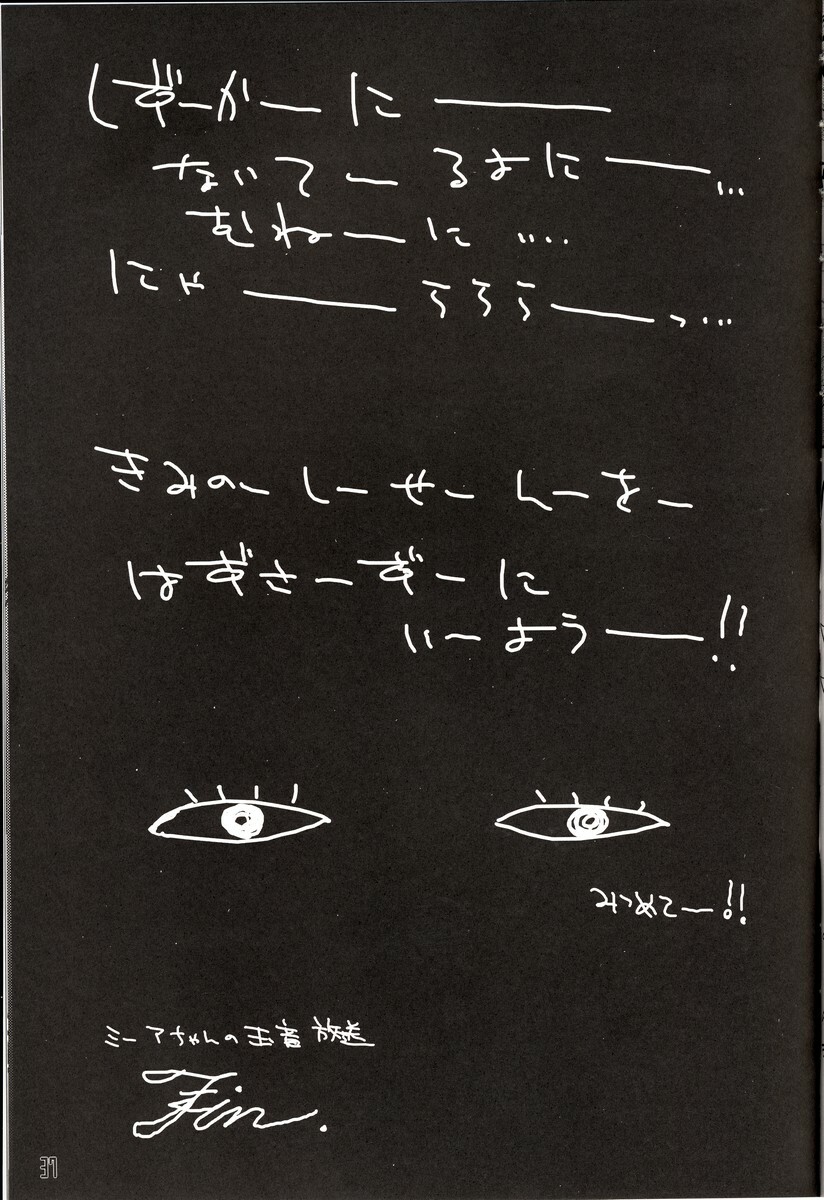 しずーかーにーーー
ないてーるよにーー…
むねーに‥‥
にゃーーーううううーーっ…
きみのーしーせーんーをー
はずさーずーに
いーようーー!!
みつめてー!!
ミーアちゃんの玉音放送
Fin.
37